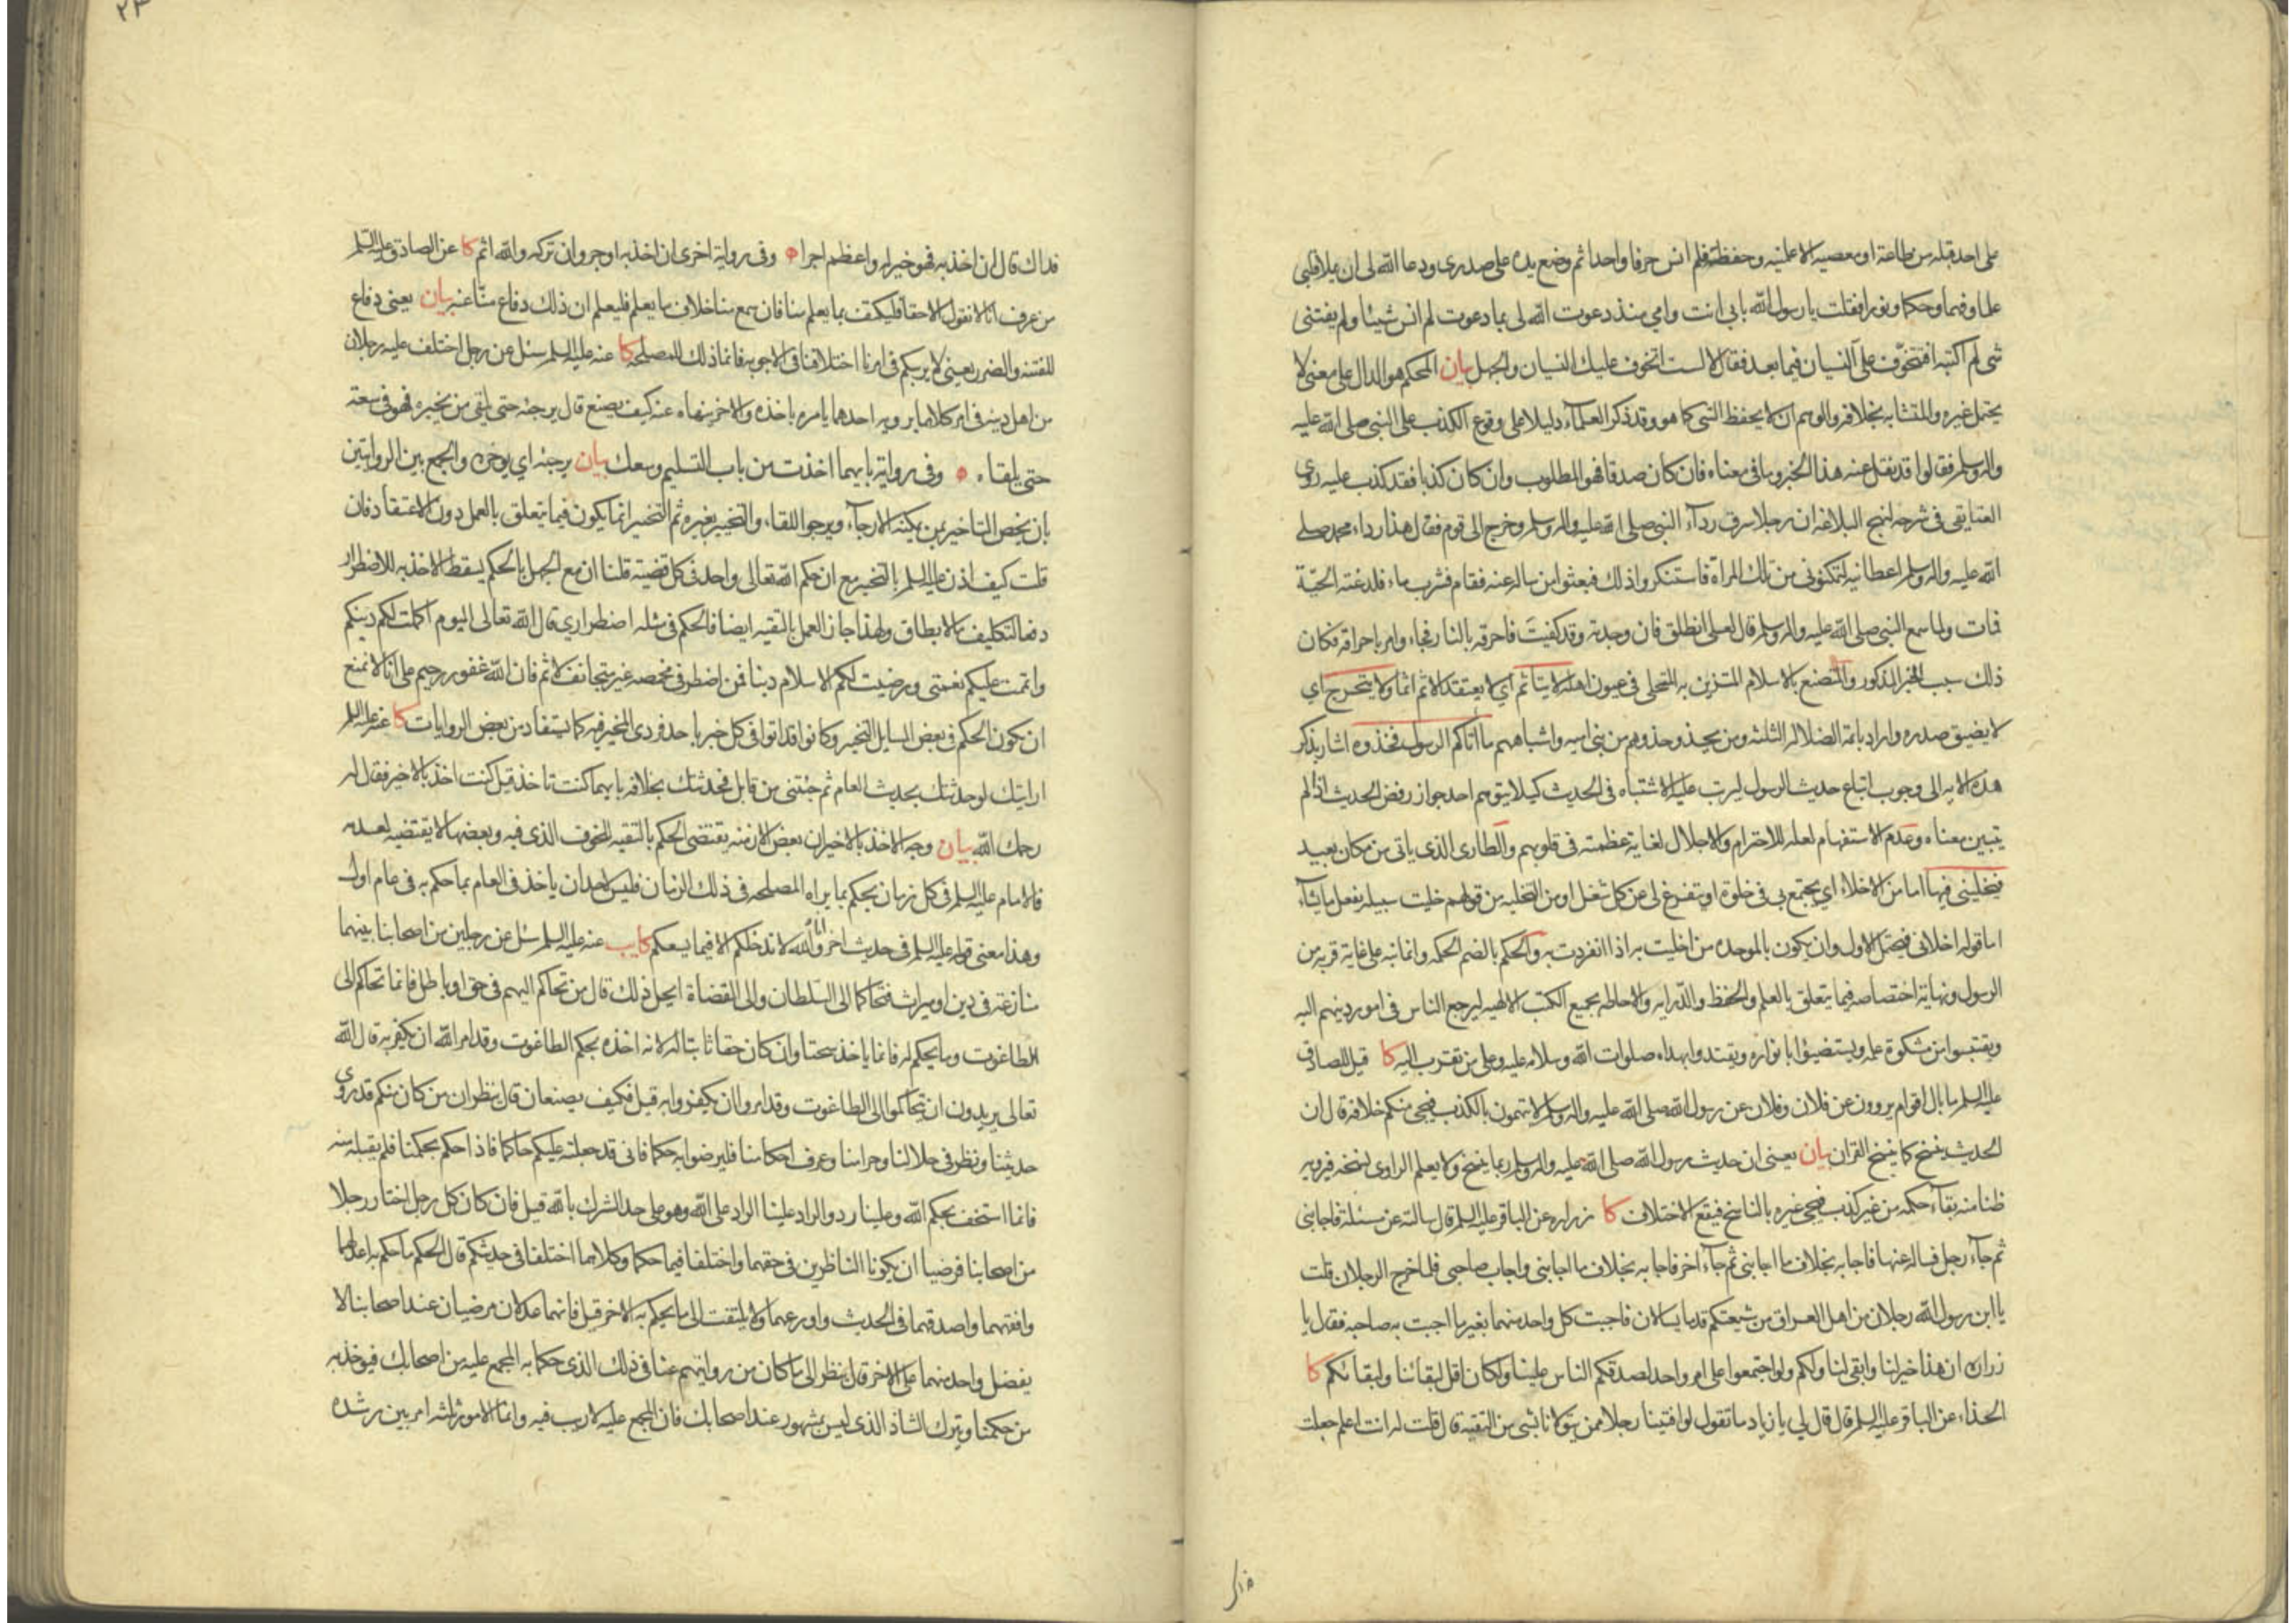 على احد قبله من طاعة او معصيه الا علمنيه وحفظته فلم انس حرفا واحدا ثم وضع يده على صدرى ودعا الله لى ان يملا قلبى
علما وفهما وحكما ونورا فقلت يا رسول الله بابى انت وامى منذ دعوت الله لى بما دعوت لم انس شيئا ولم يفتنى
شى لم اكتبه افتتخوّف علىّ النسيان فيما بعد فقال لا لست اتخوف عليك النسيان والجهل بيان المحكم هو الدال على معنى لا
يحتمل غيره والمتشابه بخلافه والوهم ان لا يحفظ الشى كما هو وقد ذكر العلماء دليلا على وقوع الكذب على النبى صلى الله عليه
واله وسلم فقالوا قد نقل عنه هذا الخبر وما فى معناه فان كان صدقا فهو المطلوب وان كان كذبا فقد كذب عليه روى
العتايقى فى شرحه لنهج البلاغه ان رجلا سرق رداء النبى صلى الله عليه واله وسلم وخرج الى قوم فقال هذا رداء محمد صلى
الله عليه واله وسلم اعطانيه لتمكنونى من تلك المراة فاستنكروا ذلك فبعثوا من ساله عنه فقام فشرب ماء فلدغته الحيّة
فمات ولما سمع النبى صلى الله عليه واله وسلم قال لعلى انطلق فان وجدته وقد كفيت فاحرقه بالنار فجاء وامر باحراقه فكان
ذلك سبب الخبر المذكور والتصنع بالاسلام المتزين به المتحلى فى عيون اهله لا يتاثم اى لا يعتقد الاثم اثما ولا يتحرج اى
لا يضيق صدره واراد بائمة الضلاله الثلثه ومن يحذو حذوهم من بنى اميه واشباههم ما اتاكم الرسول فخذوه اشار بذكر
هذه الايه الى وجوب اتباع حديث الرسول ليرتب عليه الاشتباه فى الحديث كيلا يتوهم احد جواز رفض الحديث اذا لم
يتبين معناه وعدم الاستفهام لعله للاحترام والاجلال لغاية عظمته فى قلوبهم والطارى الذى ياتى من مكان بعيد
فيخلينى فيها اما من الاخلاء اى يجتمع بى فى خلوة او يتفرغ لى عن كل شغل او من التخليه من قولهم خليت سبيله يفعل ما يشاء
اما قوله اخلانى فيحتمل الاول وان يكون بالموحده من اخليت به اذا انفردت به والحكم بالضم الحكمه وانما نبه على غاية قربه من
الرسول ونهاية اختصاصه فيما يتعلق بالعلم والحفظ والدّرايه والاحاطه بجميع الكتب الالهيه ليرجع الناس فى امور دينهم اليه
ويقتبسوا من مشكوة علمه ويستضيئوا بانواره ويقتدوا بهداه صلوات الله وسلامه عليه وعلى من تقترب اليه كا قيل للصادق
عليه السلم ما بال اقوام يروون عن فلان وفلان عن رسول الله صلى الله عليه واله وسلم لا يتهمون بالكذب فيجى منكم خلافه قال ان
الحديث ينسخ كما ينسخ القران بيان يعنى ان حديث رسول الله صلى الله عليه واله وسلم ربما ينسخ ولا يعلم الراوى لنسخه فيرويه
ظنا منه بقاء حكمه من غير كذب فيجى غيره بالناسخ فيقع الاختلاف كا زراره عن الباقر عليه السلم قال سالته عن مسئلة فاجابنى
ثم جاء رجل فساله عنها فاجابه بخلاف ما اجابنى ثم جاء اخر فاجابه بخلاف ما اجابنى واجاب صاحبى فلما خرج الرجلان قلت
يا ابن رسول الله رجلان من اهل العراق من شيعتكم قدما يسالان فاجبت كل واحد منهما بغير ما اجبت به صاحبه فقال يا
زراره ان هذا خير لنا وابقى لنا ولكم ولو اجتمعوا على امر واحد لصدقكم الناس علينا ولكان اقل لبقائنا ولبقائكم كا
الحذاء عن الباقر عليه السلم قال قال لى يا زياد ما تقول لو افتينا رجلا ممن يتولانا بشى من التقية قال قلت له انت اعلم جعلت
فداك
فداك قال ان اخذ به فهو خير له واعظم اجرا ه وفى رواية اخرى ان اخذ به اوجر وان تركه والله اثم كا عن الصادق عليه السلم
من عرف انا لا نقول الا حقا فليكتف بما يعلم منا فان سمع منا خلاف ما يعلم فليعلم ان ذلك دفاع منّا عنه بيان يعنى دفاع
للفتنه والضرر يعنى لا يريبكم فى امرنا اختلافنا فى الاجوبه فانما ذلك للمصلحه كا عنه عليه السلم سئل عن رجل اختلف عليه رجلان
من اهل دينه فى امر كلاهما يرويه احدهما يامره باخذه والاخر ينهاه عنه كيف يصنع قال يرجئه حتى يلقى من يخبره فهو فى سعة
حتى يلقاه ه وفى رواية بايهما اخذت من باب التسليم وسعك بيان يرجئه اى يوخره والجمع بين الروايتين
بان يخص التاخير بمن يمكنه الارجاء ويرجو اللقاء والتخيير بغيره ثم التخيير انما يكون فيما يتعلق بالعمل دون الاعتقاد فان
قلت كيف اذن عليه السلم بالتخيير مع ان حكم الله تعالى واحد فى كل قضيته قلنا ان مع الجهل بالحكم يسقط الاخذ به للاضطرار
دفعا لتكليف ما لا يطاق ولهذا جاز العمل بالتقيه ايضا فالحكم فى مثله اضطرارى قال الله تعالى اليوم اكملت لكم دينكم
واتممت عليكم نعمتى ورضيت لكم الاسلام دينا فمن اضطر فى مخمصه غير متجانف لاثم فان الله غفور رحيم على انا لا نمنع
ان يكون الحكم فى بعض المسايل التخيير وكانوا قد اتوا فى كل خبر باحد فردى المخير فيه كما يستفاد من بعض الروايات كا عنه عليه السلم
ارايتك لو حدثتك بحديث العام ثم جئتنى من قابل فحدثتك بخلافه بايهما كنت تاخذ قيل كنت اخذ بالاخير فقال له
رحمك الله بيان وجه الاخذ بالاخير ان بعض الازمنه يقتضى الحكم بالتقيه للخوف الذى فيه وبعضها لا يقتضيه لعدمه
فالامام عليه السلم فى كل زمان يحكم بما يراه المصلحه فى ذلك الزمان فليس لاحد ان ياخذ فى العام بما حكم به فى عام اول
وهذا معنى قوله عليه السلم فى حديث اخر انا والله لا ندخلكم الا فيما يسعكم كا يب عنه عليه السلم سئل عن رجلين من اصحابنا بينهما
منازعة فى دين او ميراث فتحاكما الى السّلطان والى القضاة ايحل ذلك قال من تحاكم اليهم فى حق او باطل فانما تحاكم الى
الطاغوت وما يحكم له فانما ياخذ سحتا وان كان حقا ثابتا له لانه اخذه بحكم الطاغوت وقد امر الله ان يكفر به قال الله
تعالى يريدون ان يتحاكموا الى الطاغوت وقد امروا ان يكفروا به قيل فكيف يصنعان قال ينظران من كان منكم قد روى
حديثنا ونظر فى حلالنا وحرامنا وعرف احكامنا فليرضوا به حكما فانى قد جعلته عليكم حاكما فاذا حكم بحكمنا فلم يقبله منه
فانما استخف بحكم الله وعلينا رد والراد علينا الراد على الله وهو على حد الشرك بالله قيل فان كان كل رجل اختار رجلا
من اصحابنا فرضيا ان يكونا الناظرين فى حقهما واختلفا فيما حكما وكلاهما اختلفا فى حديثكم قال الحكم ما حكم به اعدلهما
وافقههما واصدقهما فى الحديث واورعهما ولا يلتفت الى ما يحكم به الاخر قيل فانهما عدلان مرضيان عند اصحابنا لا
يفضل واحد منهما على الاخر قال ينظر الى ما كان من روايتهم عنا فى ذلك الذى حكما به المجمع عليه من اصحابك فيوخذ به
من حكمنا ويترك الشاذ الذى ليس بمشهور عند اصحابك فان المجمع عليه لا ريب فيه وانما الامور ثلثه امر بين رشده